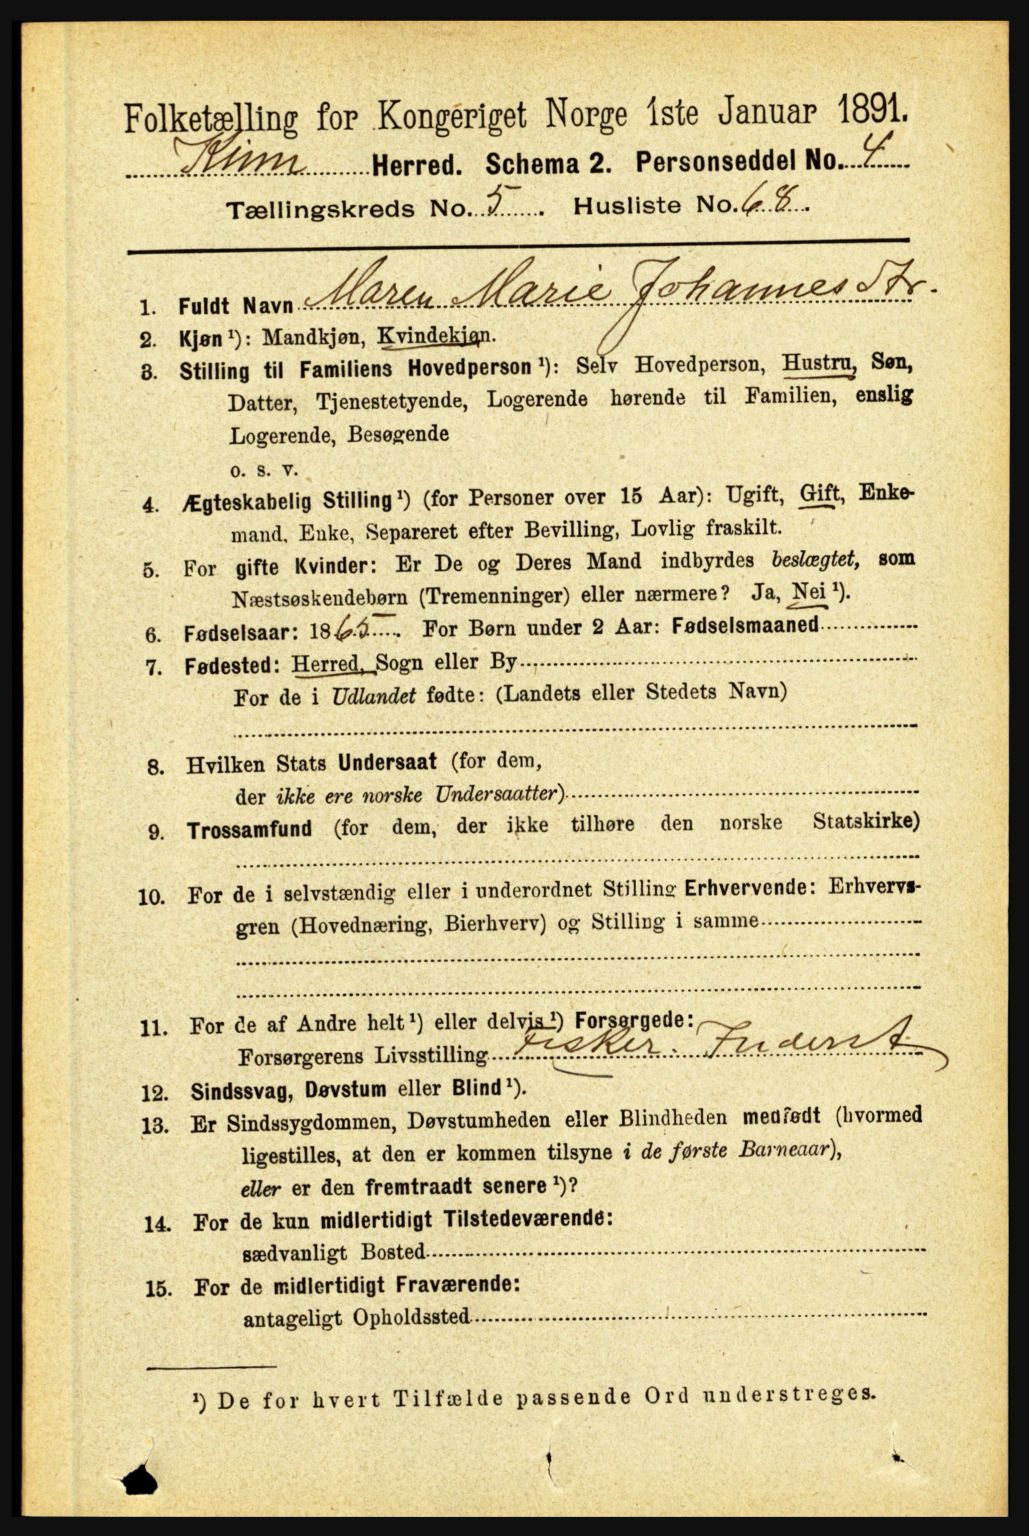 Folketælling for Kongeriget Norge 1ste Januar 1891.
Kinn Herred. Schema 2. Personseddel No. 4
Tællingskreds No. 5. Husliste No. 68.
1. Fuldt Navn Maren Marie Johannesdtr.
2. Kjøn ¹): Mandkjøn, Kvindekjøn.
3. Stilling til Familiens Hovedperson ¹): Selv Hovedperson, Hustru, Søn,
Datter, Tjenestetyende, Logerende hørende til Familien, enslig
Logerende, Besøgende
o. s. v.
4. Ægteskabelig Stilling ¹) (for Personer over 15 Aar): Ugift, Gift, Enke-
mand, Enke, Separeret efter Bevilling, Lovlig fraskilt.
5. For gifte Kvinder: Er De og Deres Mand indbyrdes beslægtet, som
Næstsøskendebørn (Tremenninger) eller nærmere? Ja, Nei ¹).
6. Fødselsaar: 1865. For Børn under 2 Aar: Fødselsmaaned
7. Fødested: Herred, Sogn eller By
For de i Udlandet fødte: (Landets eller Stedets Navn)
8. Hvilken Stats Undersaat (for dem,
der ikke ere norske Undersaatter)
9. Trossamfund (for dem, der ikke tilhøre den norske Statskirke)
10. For de i selvstændig eller i underordnet Stilling Erhvervende: Erhvervs-
gren (Hovednæring, Bierhverv) og Stilling i samme
11. For de af Andre helt ¹) eller delvis ¹) Forsørgede:
Forsørgerens Livsstilling Fisker. Inderst
12. Sindssvag, Døvstum eller Blind ¹).
13. Er Sindssygdommen, Døvstumheden eller Blindheden medfødt (hvormed
ligestilles, at den er kommen tilsyne i de første Barneaar),
eller er den fremtraadt senere ¹)?
14. For de kun midlertidigt Tilstedeværende:
sædvanligt Bosted
15. For de midlertidigt Fraværende:
antageligt Opholdssted
¹) De for hvert Tilfælde passende Ord understreges.